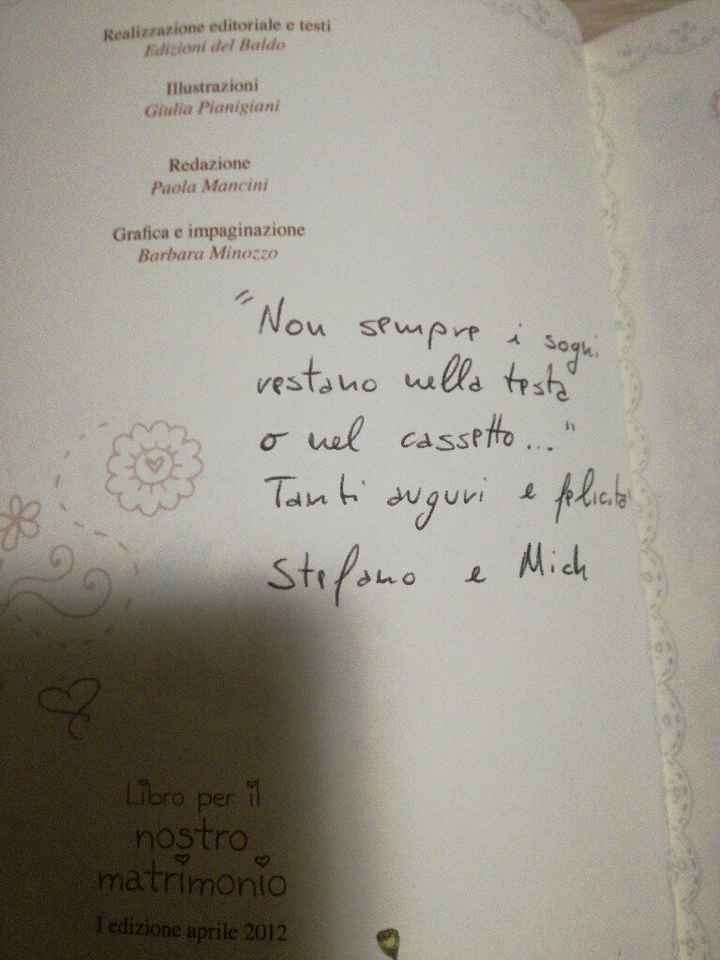 Realizzazione editoriale e testi
Edizioni del Baldo
Illustrazioni
Giulia Pianigiani
Redazione
Paola Mancini
Grafica e impaginazione
Barbara Minozzo
"Non sempre i sogni
restano nella testa
o nel cassetto..."
Tanti auguri e felicità
Stefano e Mich
Libro per il
nostro
matrimonio
I edizione aprile 2012